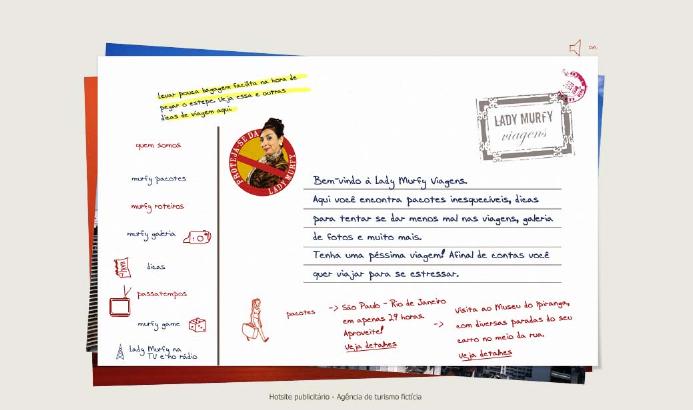 on
levar pouca bagagem facilita na hora de
pegar o estepe. Veja essa e outras
dicas de viagem aqui.
LADY MURFY
viagens
PROTEJA-SE DA
LADY MURFY
quem somos
murfy pacotes
murfy roteiros
murfy galeria
dicas
passatempos
murfy game
lady Murfy na
TV e no rádio
Bem-vindo á Lady Murfy Viagens.
Aqui você encontra pacotes inesquecíveis, dicas
para tentar se dar menos mal nas viagens, galeria
de fotos e muito mais.
Tenha uma péssima viagem! Afinal de contas você
quer viajar para se estressar.
pacotes
-> São Paulo - Rio de Janeiro
em apenas 29 horas.
Aproveite!
Veja detalhes
-> Visita ao Museu do Ipiranga,
com diversas paradas do seu
carro no meio da rua.
Veja detalhes
Hotsite publicitário - Agência de turismo fictícia